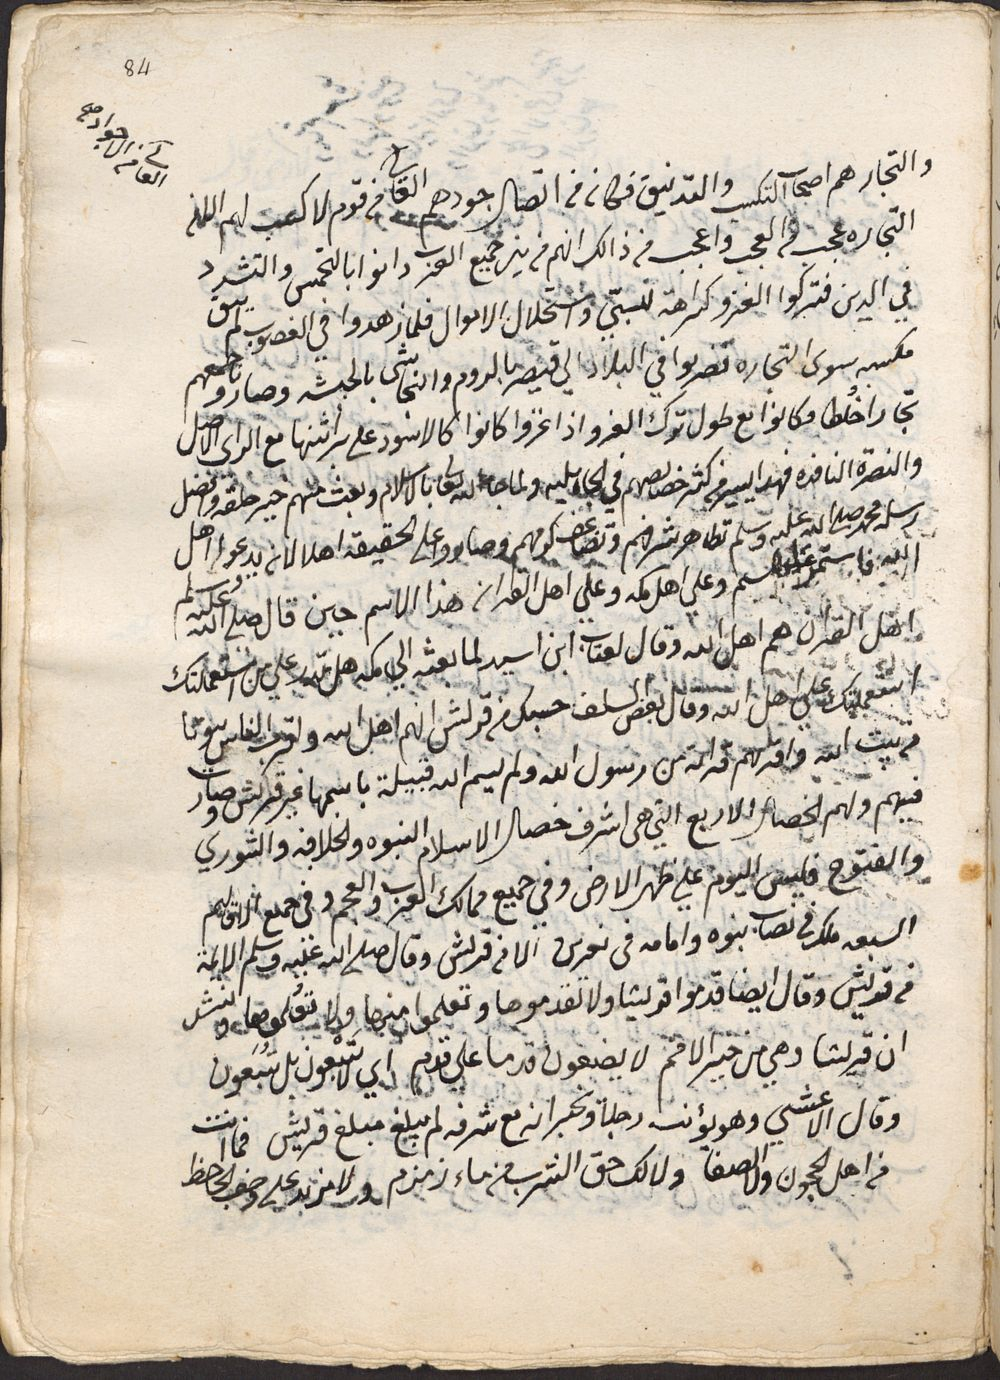 84
والتجار هم اصحاب التكسب والتدنيق فكان في اتصال جودهم العالي في قوم لا كسب لهم الا
التجاره عجب في العجب واعجب من ذالك انهم من بين جميع العرب دانوا بالتحمس والتشدد
في الدين فتركوا الغزو كراهة للسبي واستحلال الاموال فلما زهدوا في الغصوب لم يبق
مكسب سوى التجاره فضربوا في البلاد الي قيصر بالروم والنجاشى بالحبشه وصاروا باجمعهم
تجارا خُلطا فكانوا مع طول ترك الغزو اذا غزوا كانوا كالاسود على براثنها مع الراى الاصيل
والنصرة النافذه فهذا يسير من كثير خصالهم في الجاهليه ولما جا الله تعالى بالاسلام وبعث منهم خير خلقه وافضل
رسله محمد صلى الله عليه وسلم تظاهر شرفهم وتضاعف كرمهم وصاروا على الحقيقه اهلا لان يدعوا اهل
الله فاستمر عليهم الاسم وعلي اهل مكه وعلي اهل القران هذا الاسم حين قال صلى الله عليه وسلم
اهل القران هم اهل الله وقال لعتاب ابن اسيد لما بعثه الى مكه هل تدرى علي من استعملتك
استعملتك علي اهل الله وقال بعض السلف حسبك من قريش انهم اهل الله واقرب الناس بيوتا
من بيت الله واقربهم قرابة من رسول الله ولم يسم الله قبيلة باسمها غير قريش وصارت
فيهم ولهم الخصال الاربع التي هى اشرف خصال الاسلام النبوه والخلافه والشوري
والفتوح فليس اليوم علي ظهر الارض وفي جميع ممالك العرب والعجم وفى جميع الاقاليم
السبعه ملك في نصاب نبوه وامامه فى الا من قريش وقال صلى الله عليه وسلم الائمة
من قريش وقال ايضا قدموا قريشا ولا تقدموها وتعلموا منها ولا تعلموها
ان قريشا وهي من خير الامم لا يضعون قدما علي قدم اي لا يَتْبعون بل يُتبَعون
وقال الاعشي وهو يؤنب رجلا ويخبر انه مع شرفه لم يبلغ مبلغ قريش فما انت
من اهل الحجون والصفا ولا لك حق الشرب من ماء زمزم ولا نزيد على وصف الجاحظ